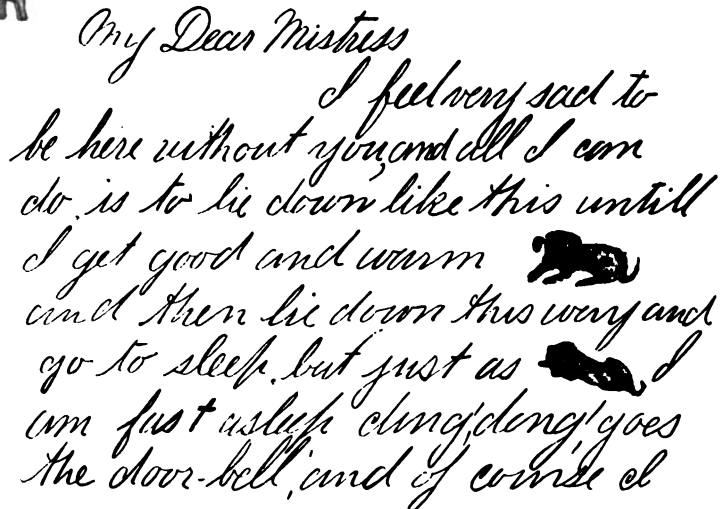 My Dear Mistress
I feel very sad to
be here without you, and all I can
do. is to lie down like this untill
I get good and warm
and then lie down this way and
go to sleep. but just as I
am fast asleep ding, dong, goes
the door-bell, and of course I